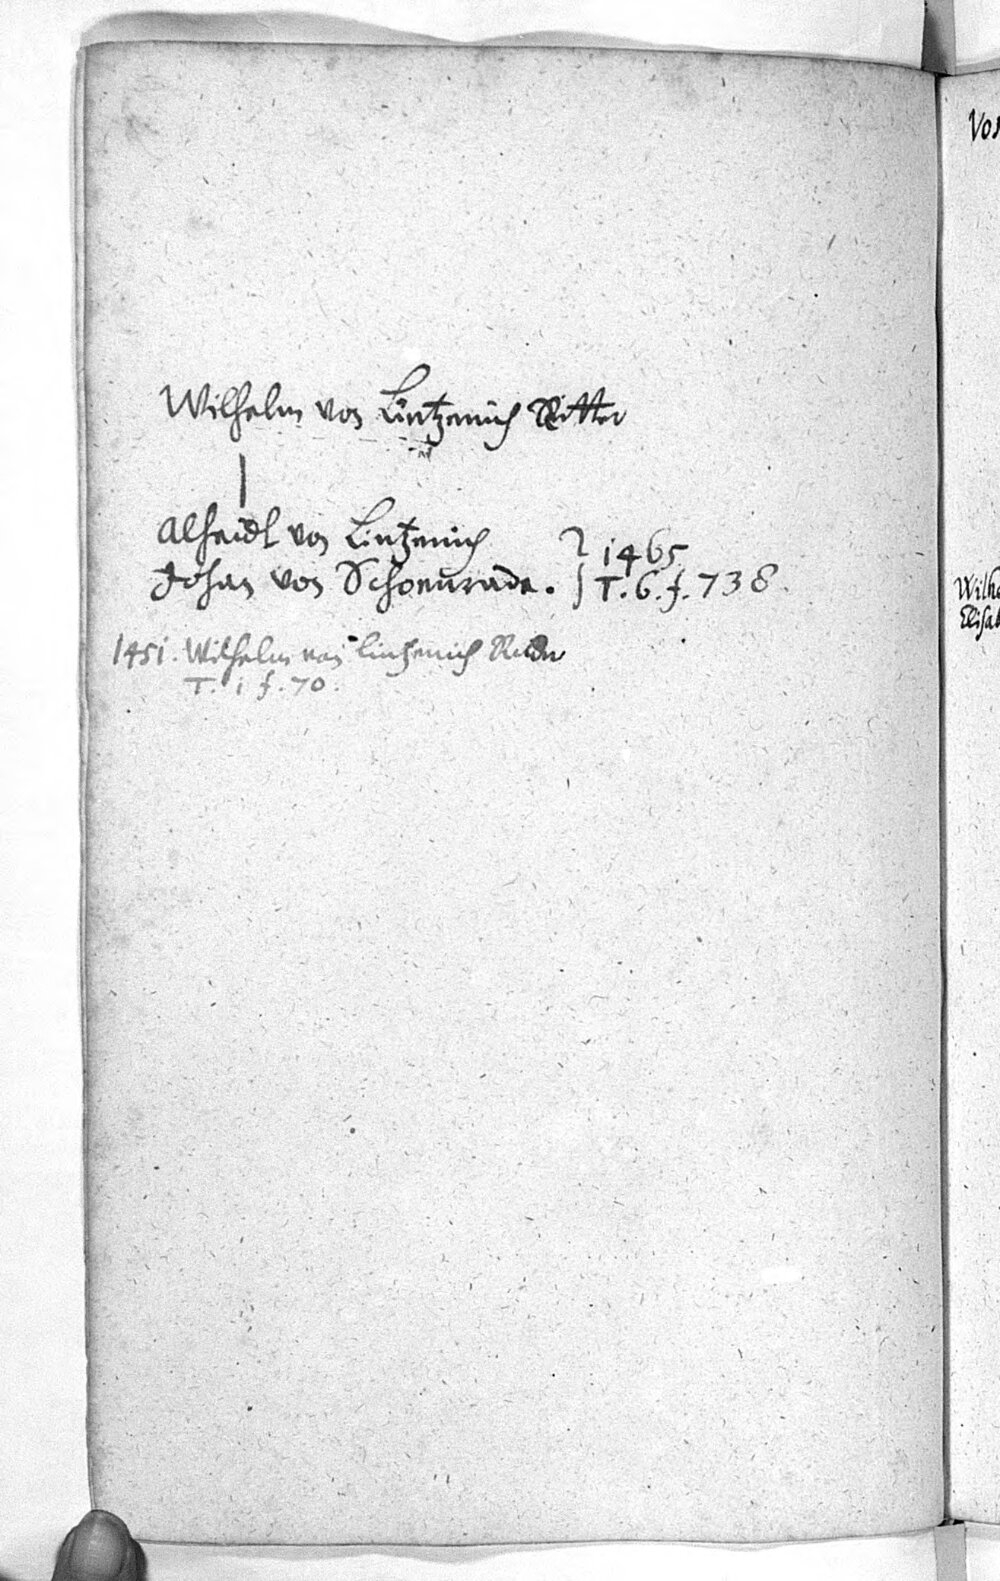 Wilhelm von Lintzenich Ritter
Alheidt von Lintzenich
Johan von Schoenrade.
} 1465
T. 6. f. 738.
1451. Wilhelm von Lintzenich Ritter
T. i f. 70.
Von
Wilhe
Elisab